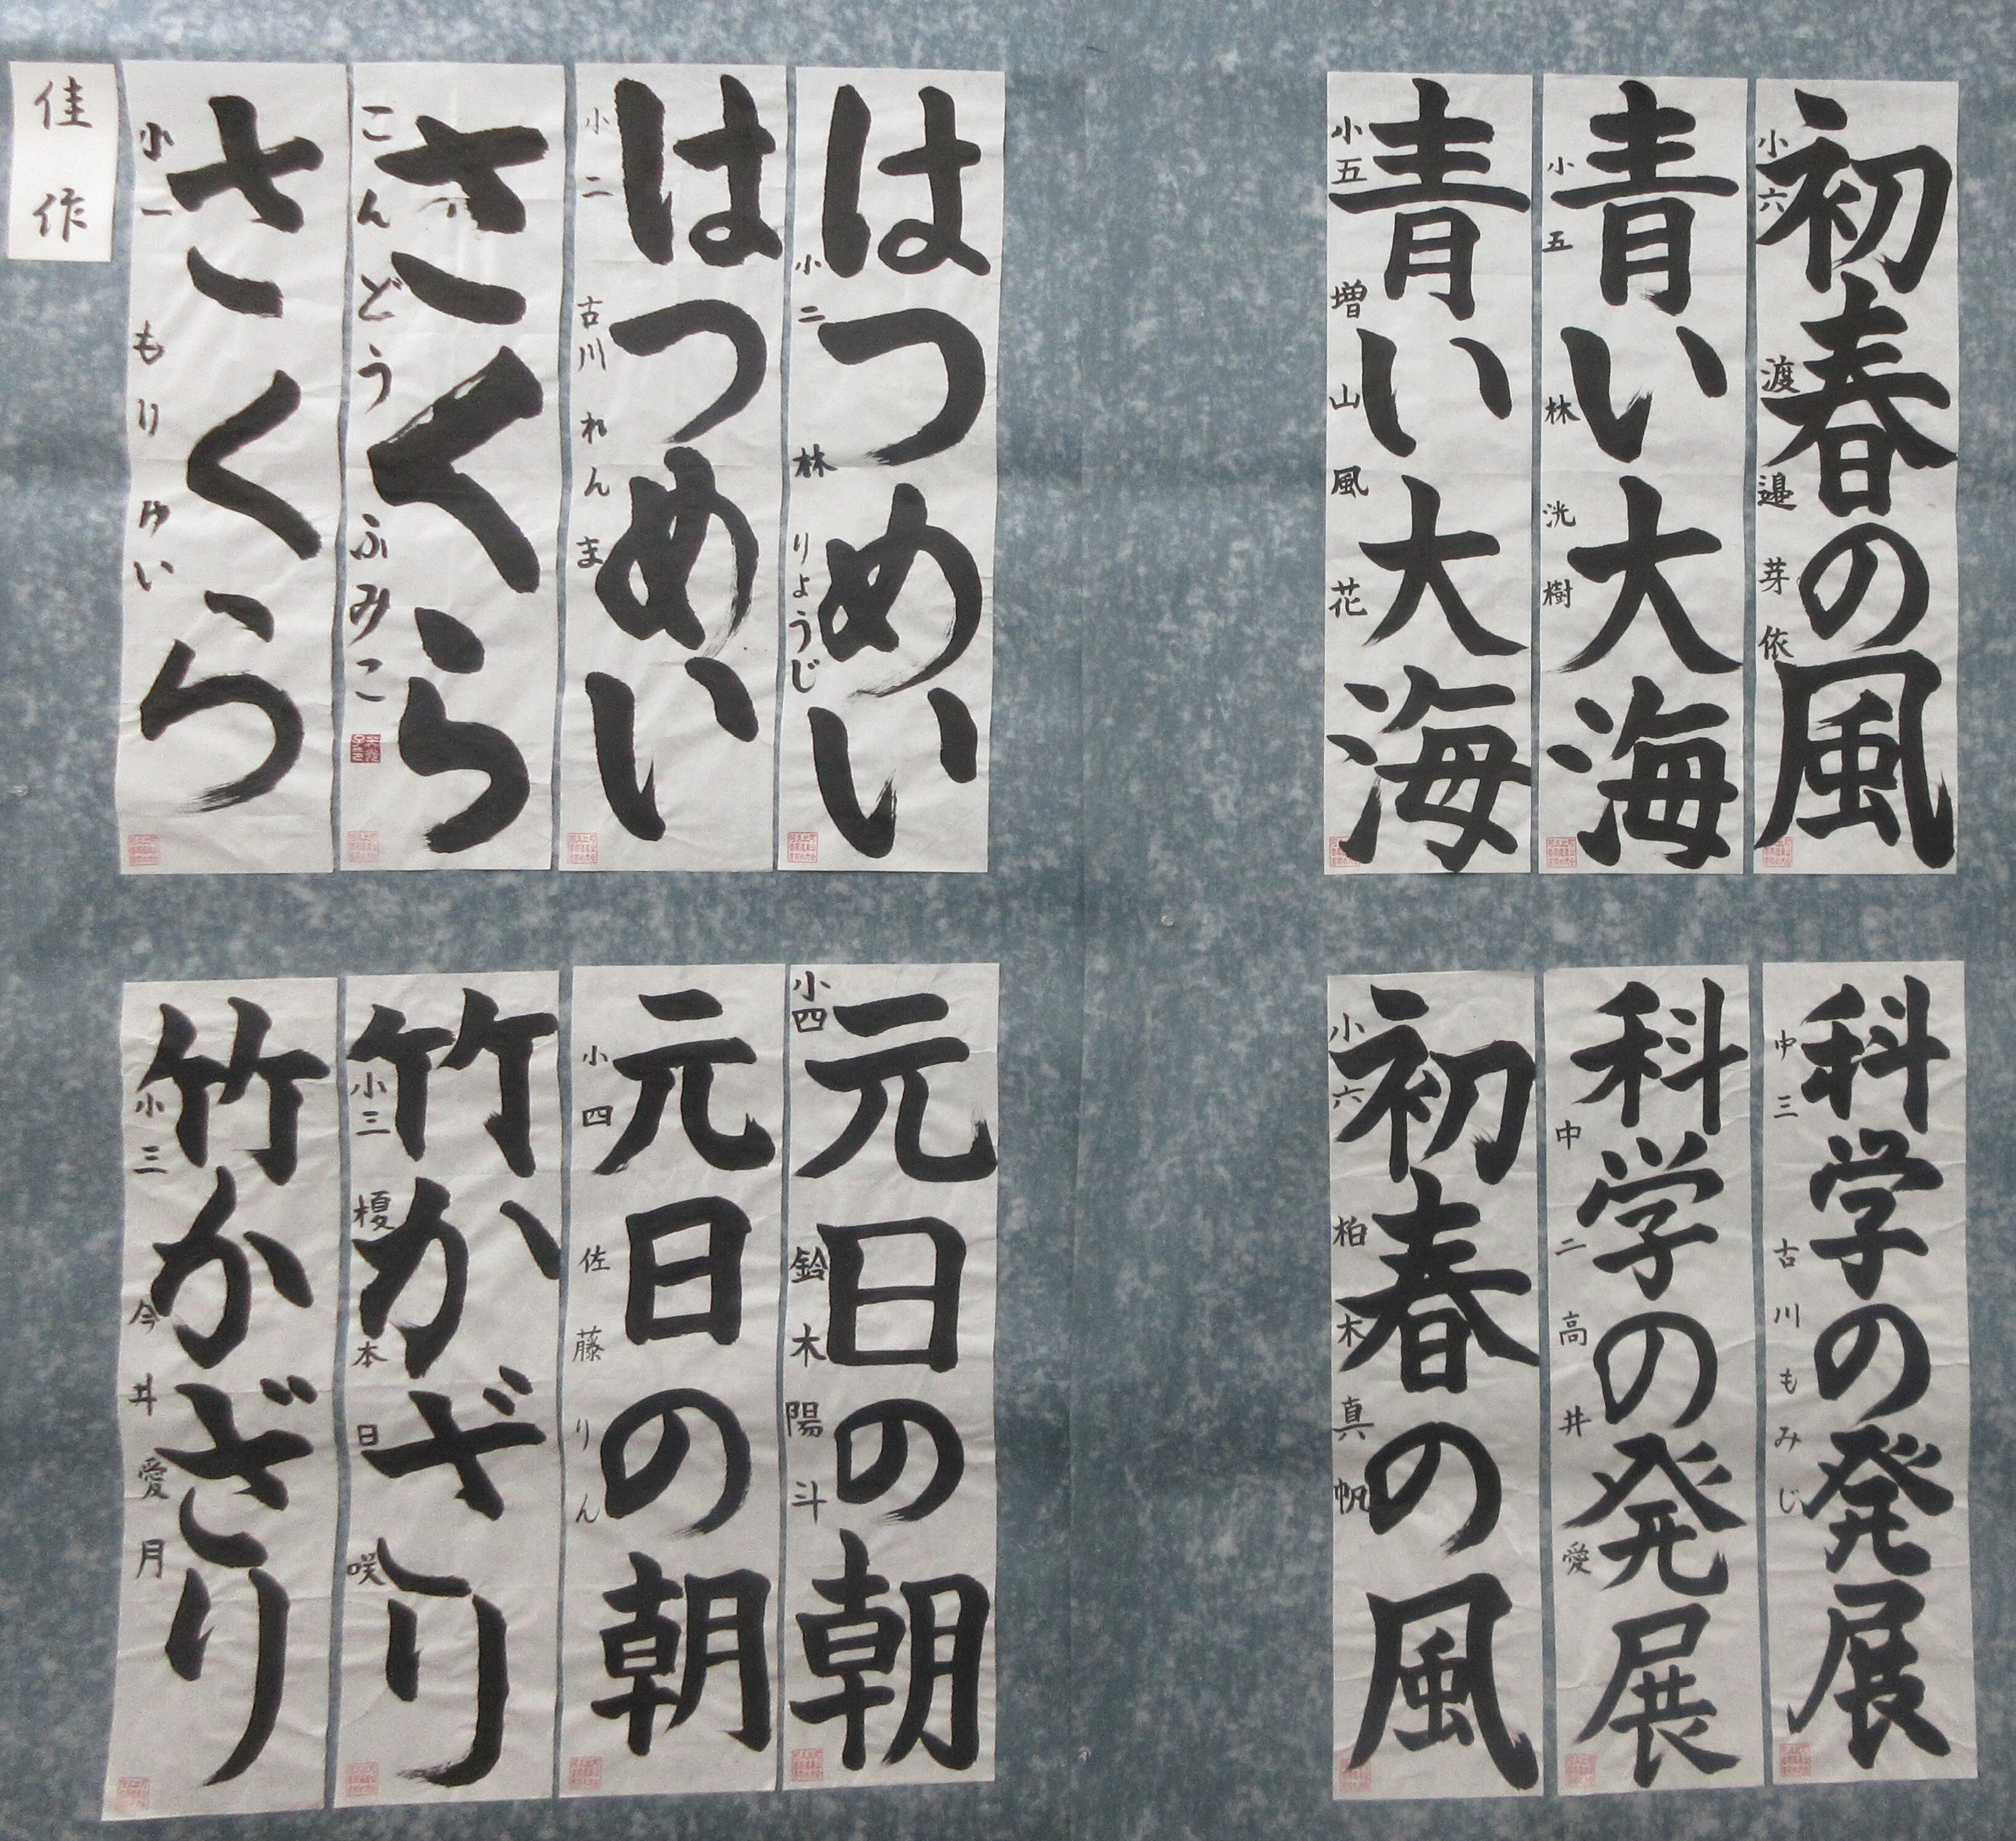 初春の風
小六 渡邉 芽依
青い大海
小五 林 洸樹
青い大海
小五 増山 風花
はつめい
小二 林 りょうじ
はつめい
小二 古川 れんま
さくら
こんどう ふみこ
さくら
小一 もり ゆい
佳作
科学の発展
中三 古川 もみじ
科学の発展
中二 高井 愛
初春の風
小六 柏木 真帆
元日の朝
小四 鈴木 陽斗
元日の朝
小四 佐藤 りん
竹かざり
小三 榎本 日咲
竹かざり
小三 今井 愛月